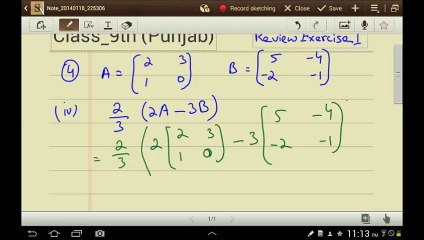 Note_20140118_226306
Record sketching
Class_9th (Punjab)
Review Exercise 1
④ A = [2 3
1 0] B = [5 -4
-2 -1]
(iv) 2/3 (2A - 3B)
= 2/3 (2 [2 3
1 0] - 3 [5 -4
-2 -1]
1/1
11:13 PM